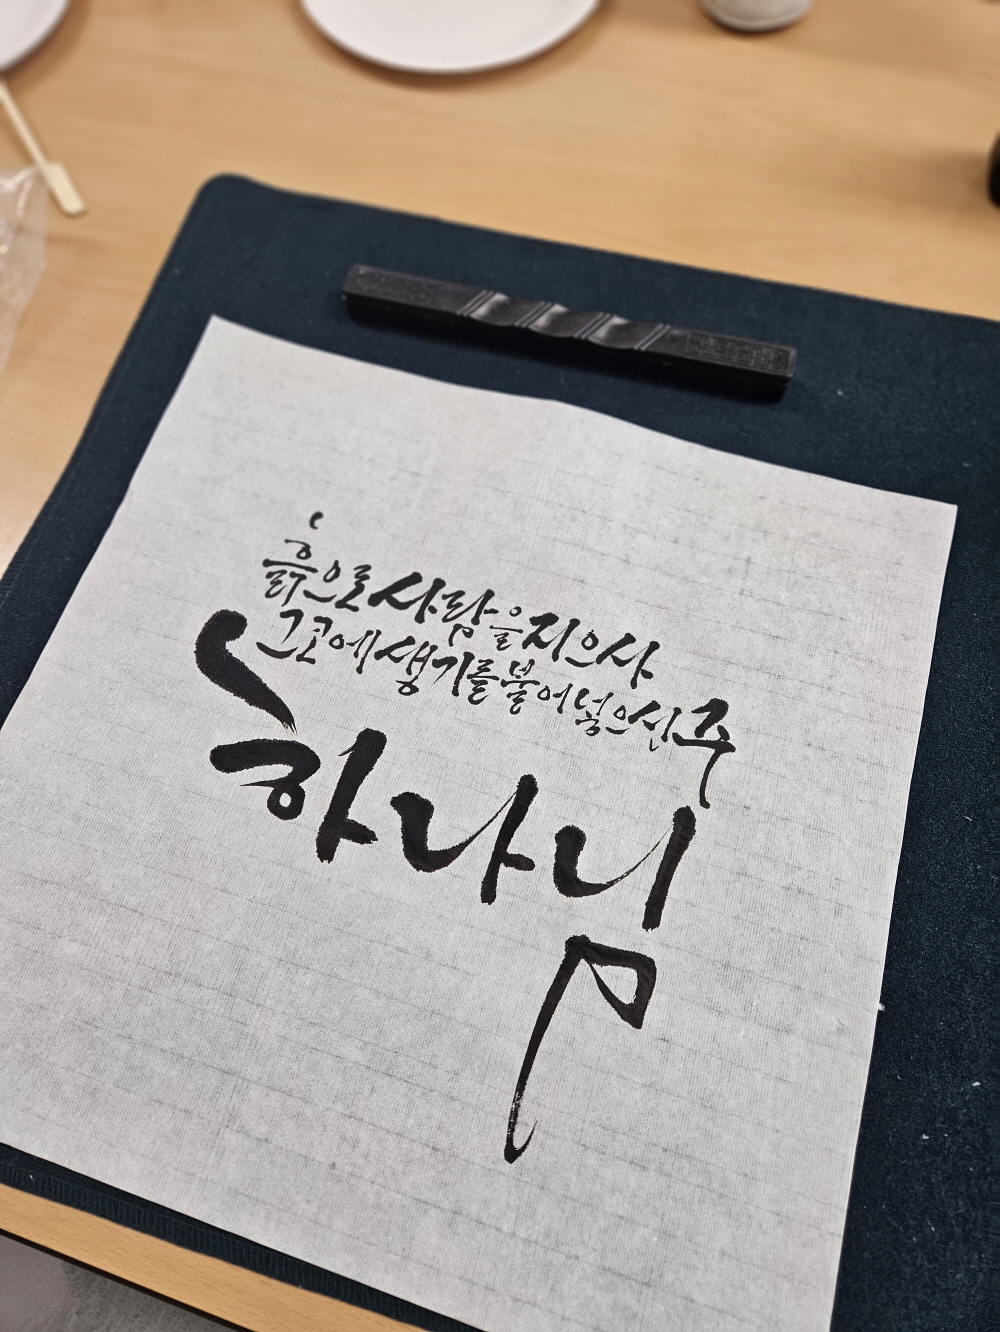 흙으로 사람을 지으사
그 코에 생기를 불어넣으신 주
하나님